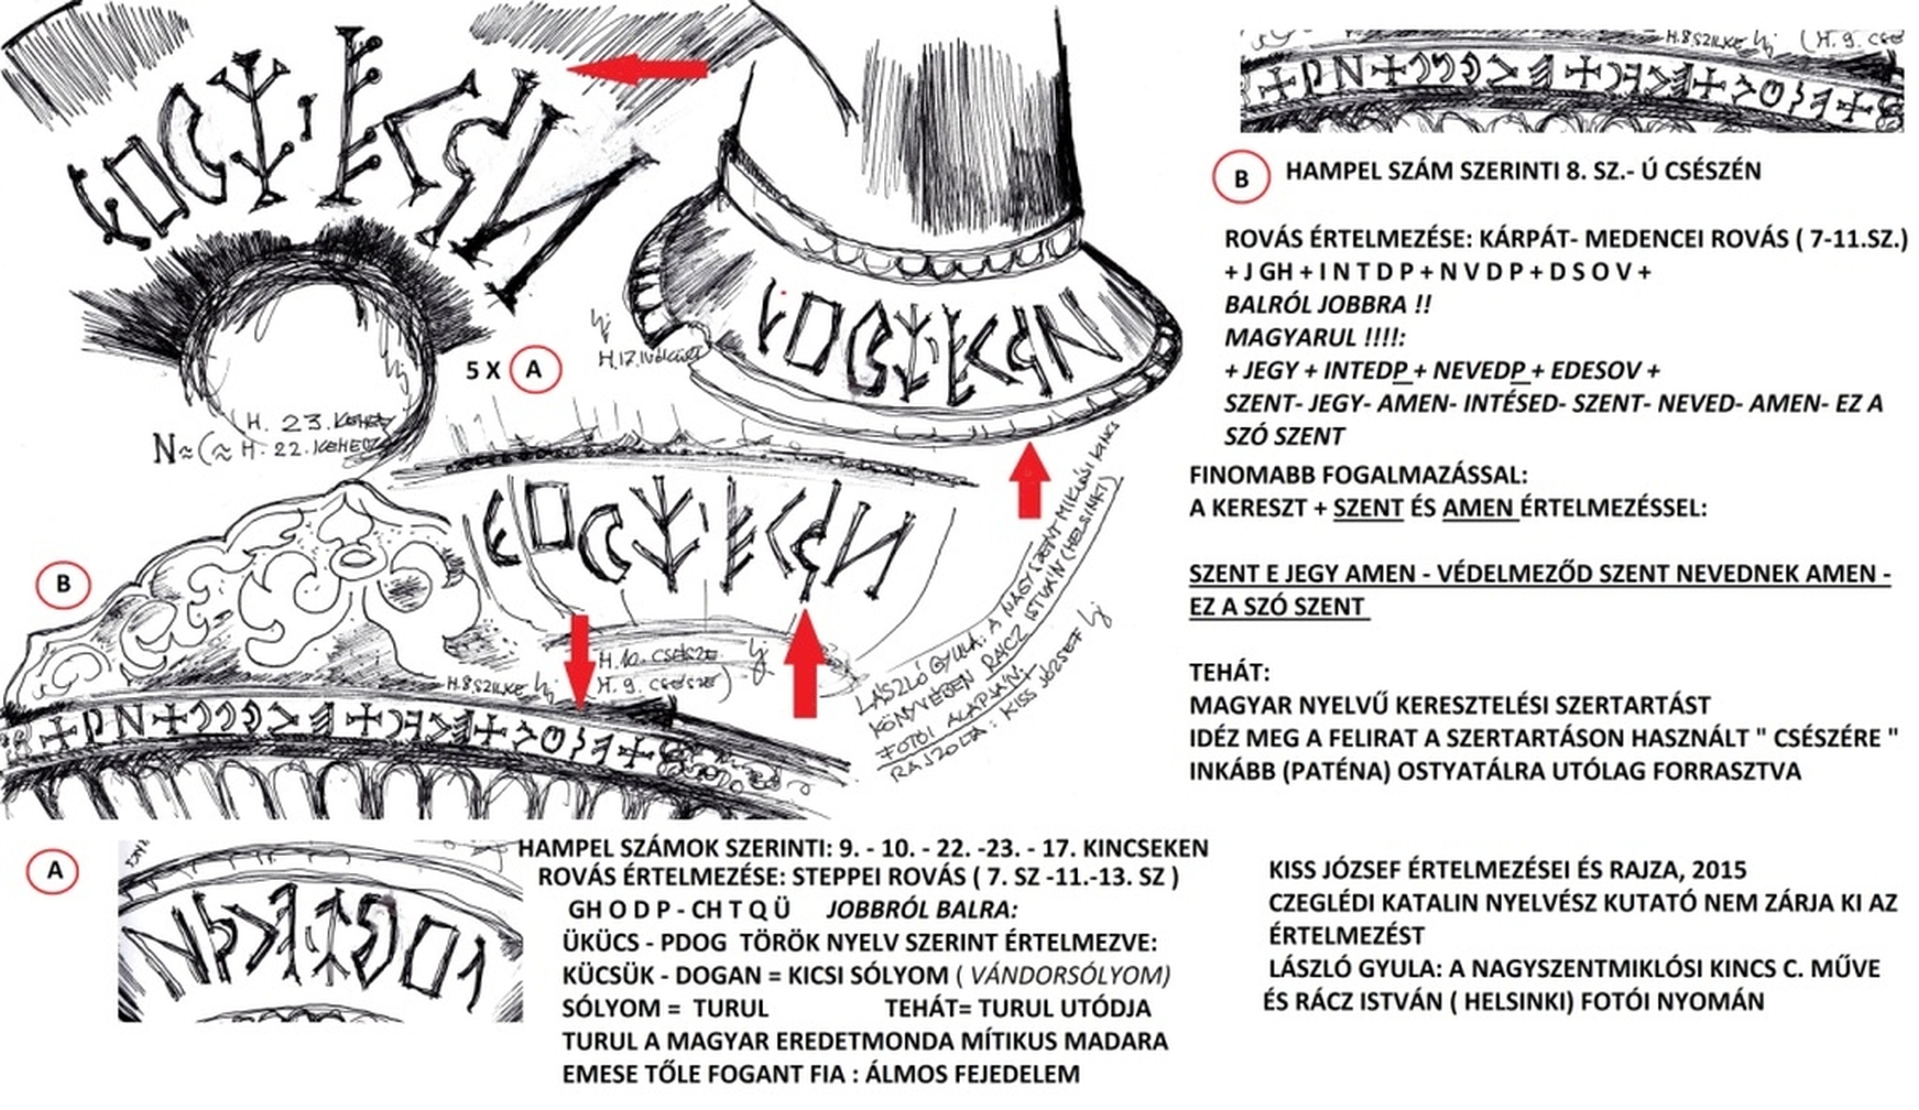 5 X A
H. 23. KEHELY
N ≈ (≈ H. 22. KEHELY
H. 10. CSÉSZE
(H. 9. CSÉSZE)
H.8.SZILKE
LÁSZLÓ GYULA: A NAGYSZENTMIKLÓSI KINCS
KÖNYVÉBEN RÁCZ ISTVÁN (HELSINKI)
FOTÓI ALAPJÁN:
RAJZOLTA: KISS JÓZSEF
B
A
H.8.SZILKE
(H. 9. CSÉ
B HAMPEL SZÁM SZERINTI 8. SZ.- Ú CSÉSZÉN
ROVÁS ÉRTELMEZÉSE: KÁRPÁT- MEDENCEI ROVÁS ( 7-11.SZ.)
+ J GH + I N T D P + N V D P + D S O V +
BALRÓL JOBBRA !!
MAGYARUL !!!!:
+ JEGY + INTEDP + NEVEDP + EDESOV +
SZENT- JEGY- AMEN- INTÉSED- SZENT- NEVED- AMEN- EZ A
SZÓ SZENT
FINOMABB FOGALMAZÁSSAL:
A KERESZT + SZENT ÉS AMEN ÉRTELMEZÉSSEL:
SZENT E JEGY AMEN - VÉDELMEZŐD SZENT NEVEDNEK AMEN -
EZ A SZÓ SZENT
TEHÁT:
MAGYAR NYELVŰ KERESZTELÉSI SZERTARTÁST
IDÉZ MEG A FELIRAT A SZERTARTÁSON HASZNÁLT " CSÉSZÉRE "
INKÁBB (PATÉNA) OSTYATÁLRA UTÓLAG FORRASZTVA
HAMPEL SZÁMOK SZERINTI: 9. - 10. - 22. -23. - 17. KINCSEKEN
ROVÁS ÉRTELMEZÉSE: STEPPEI ROVÁS ( 7. SZ -11.-13. SZ )
GH O D P - CH T Q Ü JOBBRÓL BALRA:
ÜKÜCS - PDOG TÖRÖK NYELV SZERINT ÉRTELMEZVE:
KÜCSÜK - DOGAN = KICSI SÓLYOM ( VÁNDORSÓLYOM)
SÓLYOM = TURUL TEHÁT= TURUL UTÓDJA
TURUL A MAGYAR EREDETMONDA MÍTIKUS MADARA
EMESE TŐLE FOGANT FIA : ÁLMOS FEJEDELEM
KISS JÓZSEF ÉRTELMEZÉSEI ÉS RAJZA, 2015
CZEGLÉDI KATALIN NYELVÉSZ KUTATÓ NEM ZÁRJA KI AZ
ÉRTELMEZÉST
LÁSZLÓ GYULA: A NAGYSZENTMIKLÓSI KINCS C. MŰVE
ÉS RÁCZ ISTVÁN ( HELSINKI) FOTÓI NYOMÁN